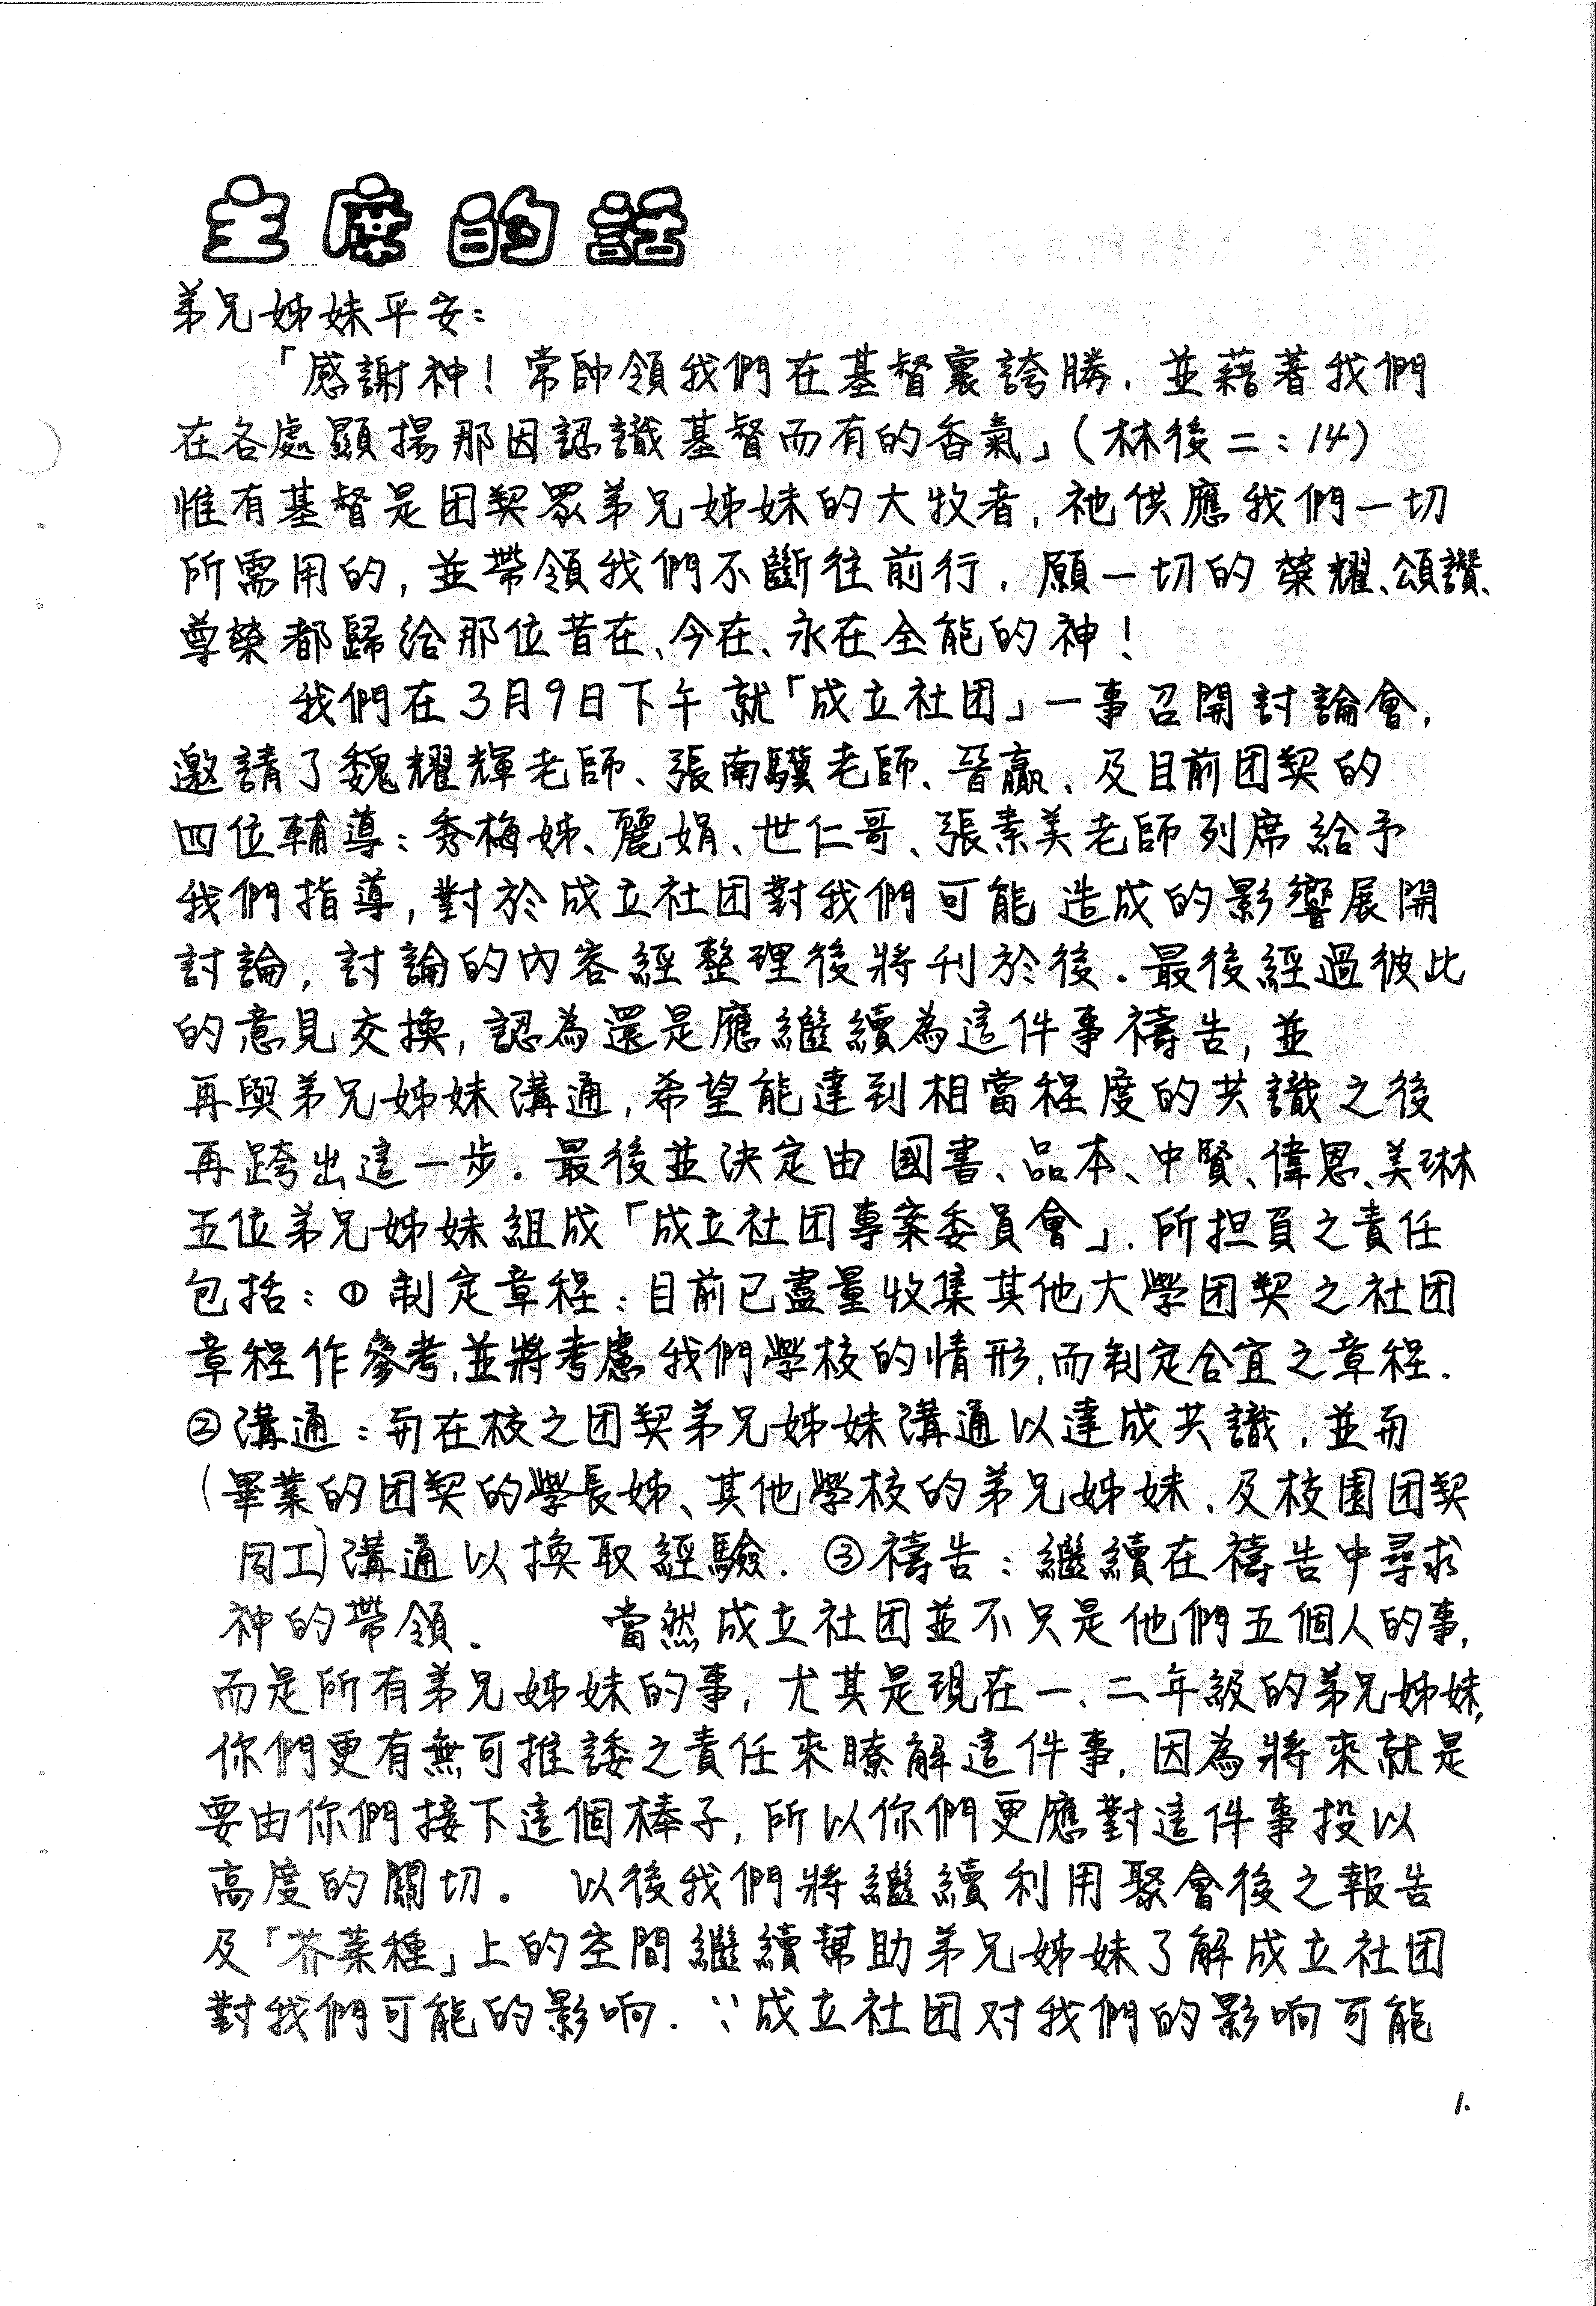 主席的話
弟兄姊妹平安：
「感謝神！常帥領我們在基督裏誇勝．並藉著我們
在各處顯揚那因認識基督而有的香氣」（林後二：14）
惟有基督是团契眾弟兄姊妹的大牧者，祂供應我們一切
所需用的，並帶領我們不斷往前行．願一切的榮耀、頌讚、
尊榮都歸給那位昔在、今在、永在全能的神！
我們在3月9日下午就「成立社团」一事召開討論會，
邀請了魏耀輝老師、張南驥老師、晉贏、及目前团契的
四位輔導：秀梅姊、麗娟、世仁哥、張素美老師列席給予
我們指導，對於成立社团對我們可能造成的影響展開
討論，討論的內容經整理後將刊於後．最後經過彼此
的意見交換，認為還是應繼續為這件事禱告，並
再與弟兄姊妹溝通，希望能達到相當程度的共識之後
再跨出這一步．最後並決定由國書、品本、中賢、偉恩、美琳
五位弟兄姊妹組成「成立社团專案委員會」．所担負之責任
包括：①制定章程：目前已盡量收集其他大學团契之社团
章程作參考，並將考慮我們學校的情形，而制定合宜之章程．
②溝通：在校之团契弟兄姊妹溝通以達成共識，並
（畢業的团契的學長姊、其他學校的弟兄姊妹、及校園团契
同工）溝通以換取經驗．③禱告：繼續在禱告中尋求
神的帶領． 當然成立社团並不只是他們五個人的事，
而是所有弟兄姊妹的事，尤其是現在一、二年級的弟兄姊妹，
你們更有無可推諉之責任來瞭解這件事，因為將來就是
要由你們接下這個棒子，所以你們更應對這件事投以
高度的關切。 以後我們將繼續利用聚會後之報告
及「芥菜種」上的空間繼續幫助弟兄姊妹了解成立社团
對我們可能的影响．∵成立社团对我們的影响可能
1.